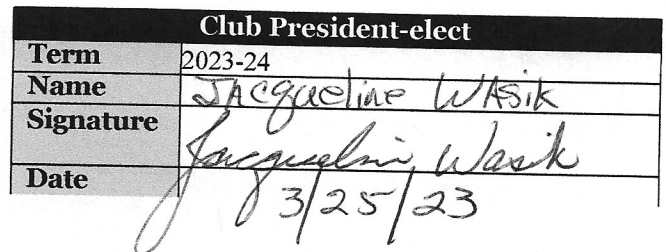 Club President-elect
Term 2023-24
Name Jacqueline Wasik
Signature Jacqueline Wasik
Date 3/25/23